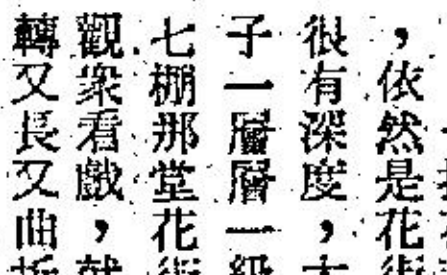 ，依然是花
很有深度，
子一層層一級
七棚那堂花街
觀眾看戲，就
轉又長又曲